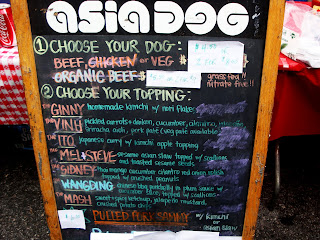 asia DOG
① CHOOSE YOUR DOG:
BEEF, CHICKEN or VEG
ORGANIC BEEF
grass fed!!
nitrate free!!
② CHOOSE YOUR TOPPING:
the GINNY homemade kimchi w/ nori flakes
the VINH pickled carrots & daikon, cucumber, cilantro,
Sriracha aioli, pork paté (veg paté available
the ITO japanese curry w/ kimchi apple topping
the MEL & STEVE sesame asian slaw topped w/ scallions
and toasted sesame seeds
the SIDNEY thai mango cucumber cilantro red onion relish
topped w/ crushed peanuts
WANGDING chinese bbq pork belly in plum sauce w/
cucumber topped w/ scallions
the MASH sweet spicy ketchup, jalapeño mustard,
crushed potato chips
PULLED PORK SAMMY w/ kimchi
or asian slaw